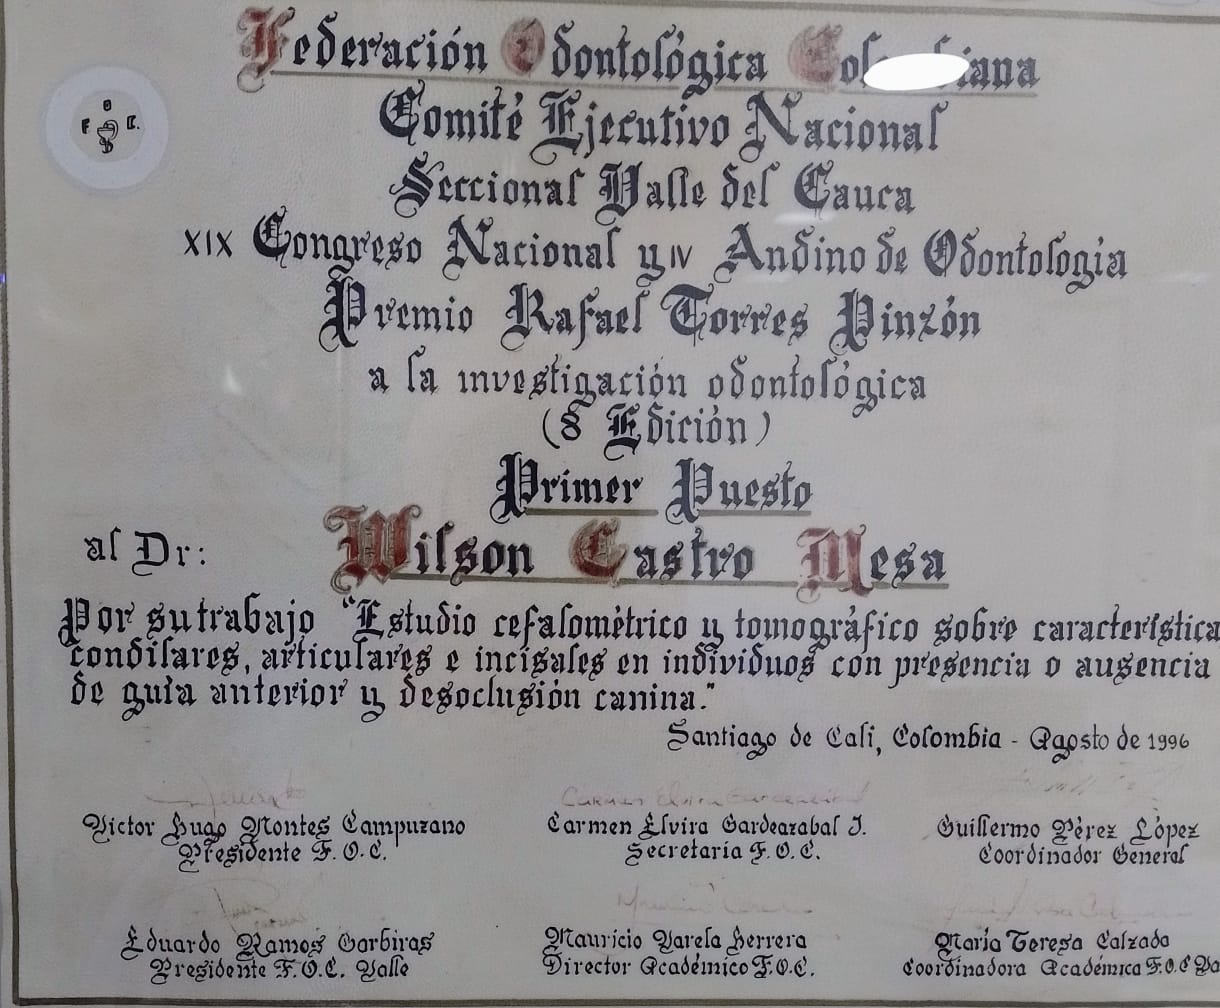 Federación Odontológica
Comité Ejecutivo Nacional
O
F C.
Seccional Valle del Cauca
XIX Congreso Nacional y IV Andino de Odontología
Premio Rafael Torres Pinzón
a la investigación odontológica
(8 Edición)
Primer Puesto
al Dr: Wilson Castro Mesa
Por su trabajo "Estudio cefalométrico y tomográfico sobre característica
condilares, articulares e incisales en individuos con presencia o ausencia
de guía anterior y desoclusión canina."
Santiago de Cali, Colombia - Agosto de 1996
Victor Hugo Montes Campuzano
Presidente F.O.C.
Carmen Elvira Gardeazabal J.
Secretaria F.O.C.
Guillermo Pérez López
Coordinador General
Eduardo Ramos Garbiras
Presidente F.O.C. Valle
Mauricio Varela Herrera
Director Académico F.O.C.
María Teresa Calzada
Coordinadora Académica F.O.C Va